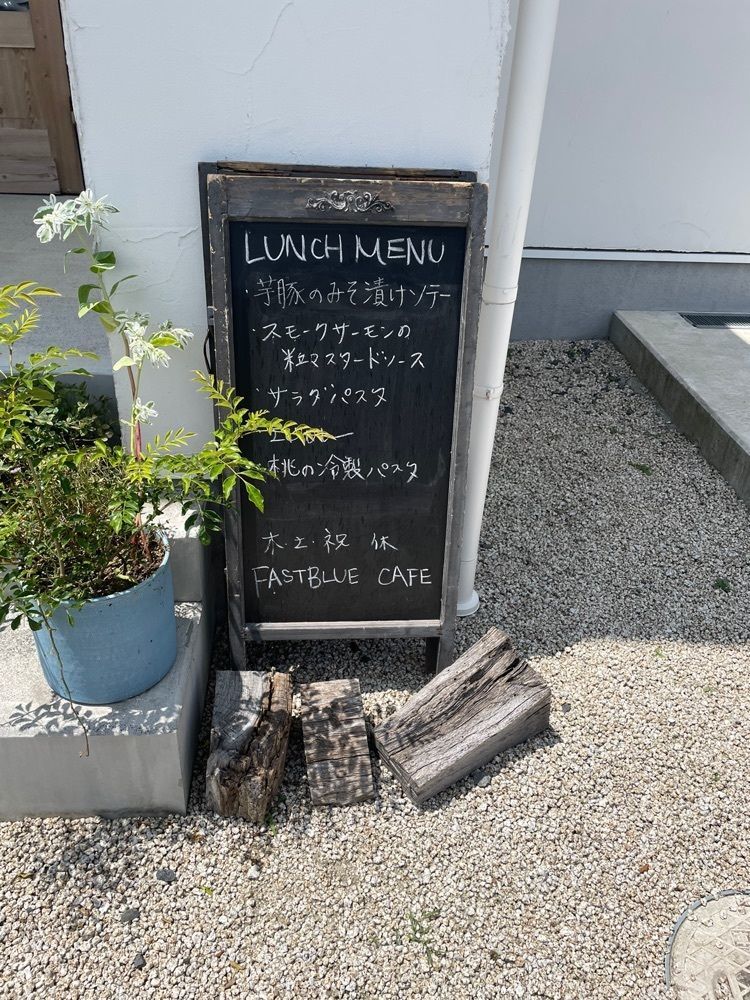 LUNCH MENU
・芋豚のみそ漬けソテー
・スモークサーモンの
粒マスタードソース
・サラダパスタ
桃の冷製パスタ
木・土・祝 休
FASTBLUE CAFE